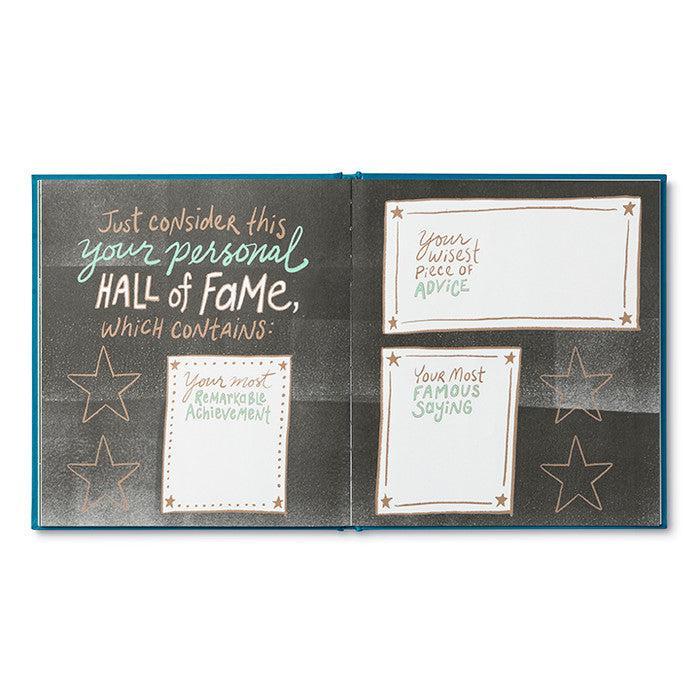 Just consider this
your personal
HALL of FAME,
which contains:
Your most
Remarkable
Achievement
Your
wisest
piece of
ADVICE
Your Most
FAMOUS
Saying